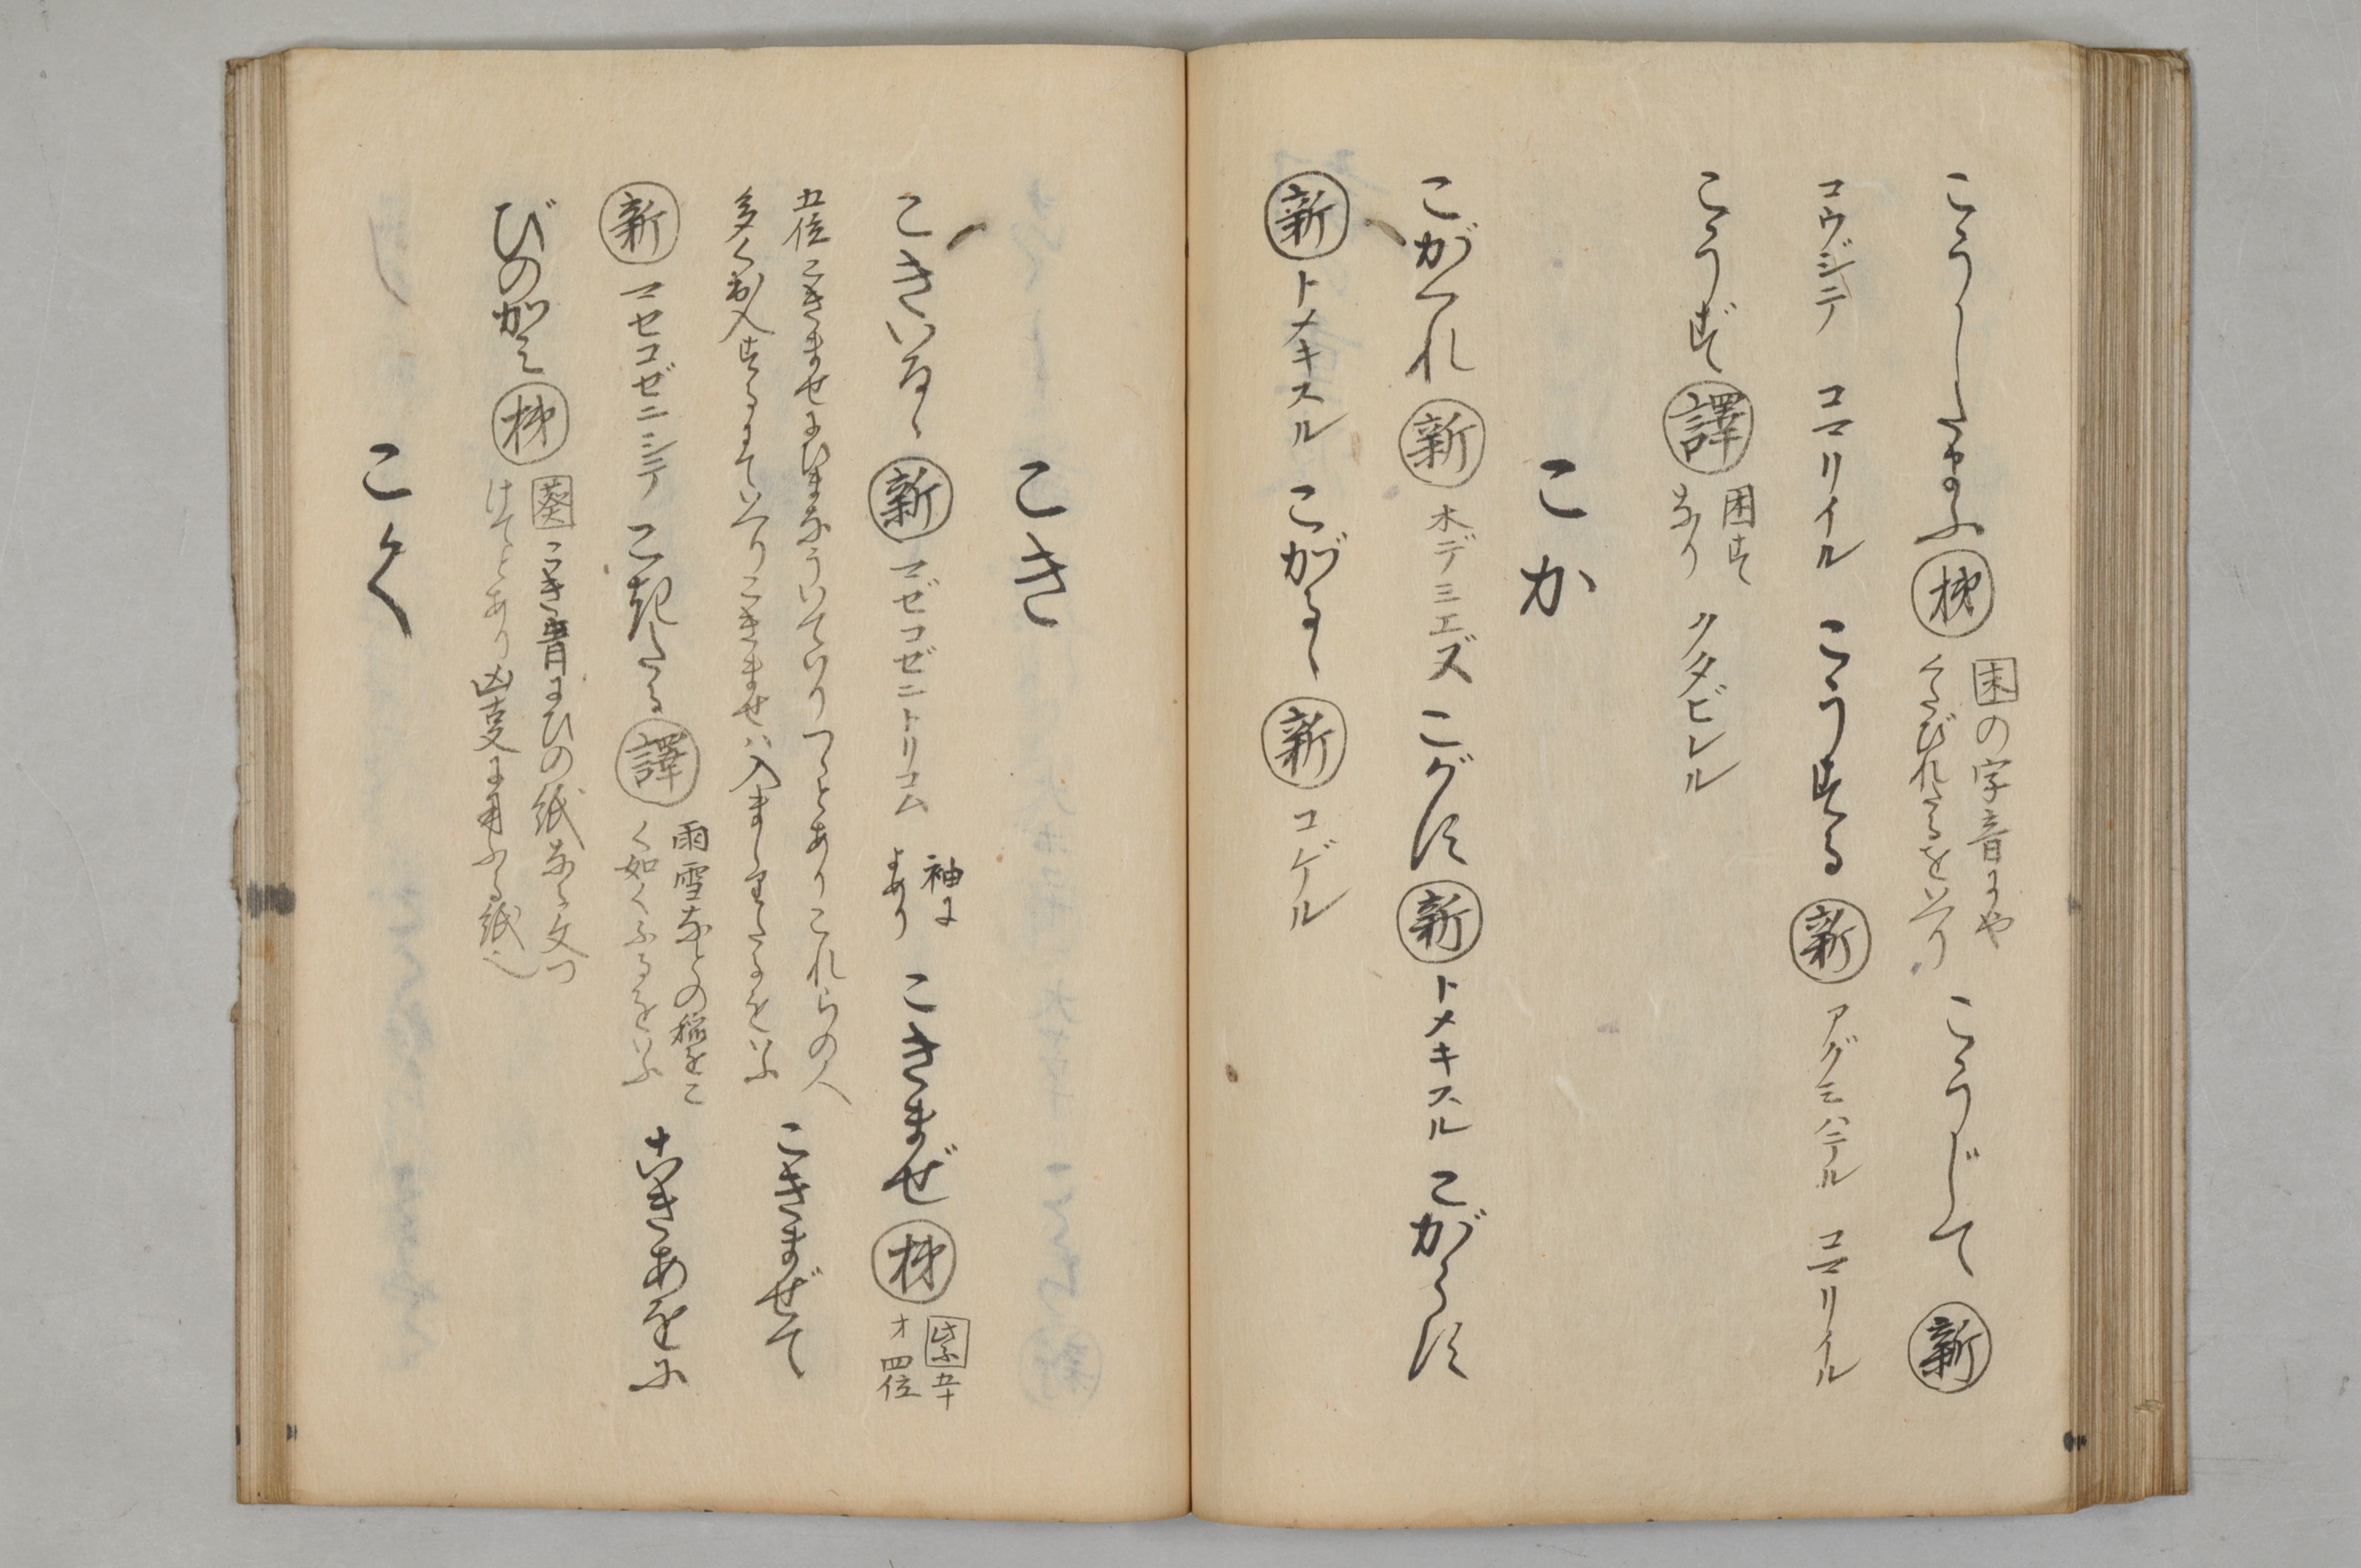 こうしたまふ 梯 困の字音にや くたびれたるをいへり こうじて 新
コウジテ コマリイル こうずる 新 アグミハテル コマリイル
こうず 譯 困ず なり クタビレル
こか
こがくれ 新 木デミエズ こがす 新 トメキスル こがらす
新 トメキスル こがるゝ 新 コゲル
こき
こきいるゝ 新 マゼコゼニトリコム 袖に よめり こきまぜ 梯 五十 才 四位
五位こきまぜにひまなういていりつゝとありこれらの人
多く出入するさまていへりこきまぜは入ましりたるをいふ こきまぜて
新 マセコゼニシテ こきたる 譯 雨雪などの稲をこ く如くふるをいふ こきあをに
びのかみ 梯 葵 こき青にひの紙なる文つ けてとあり 凶変に用ふる紙也
こく